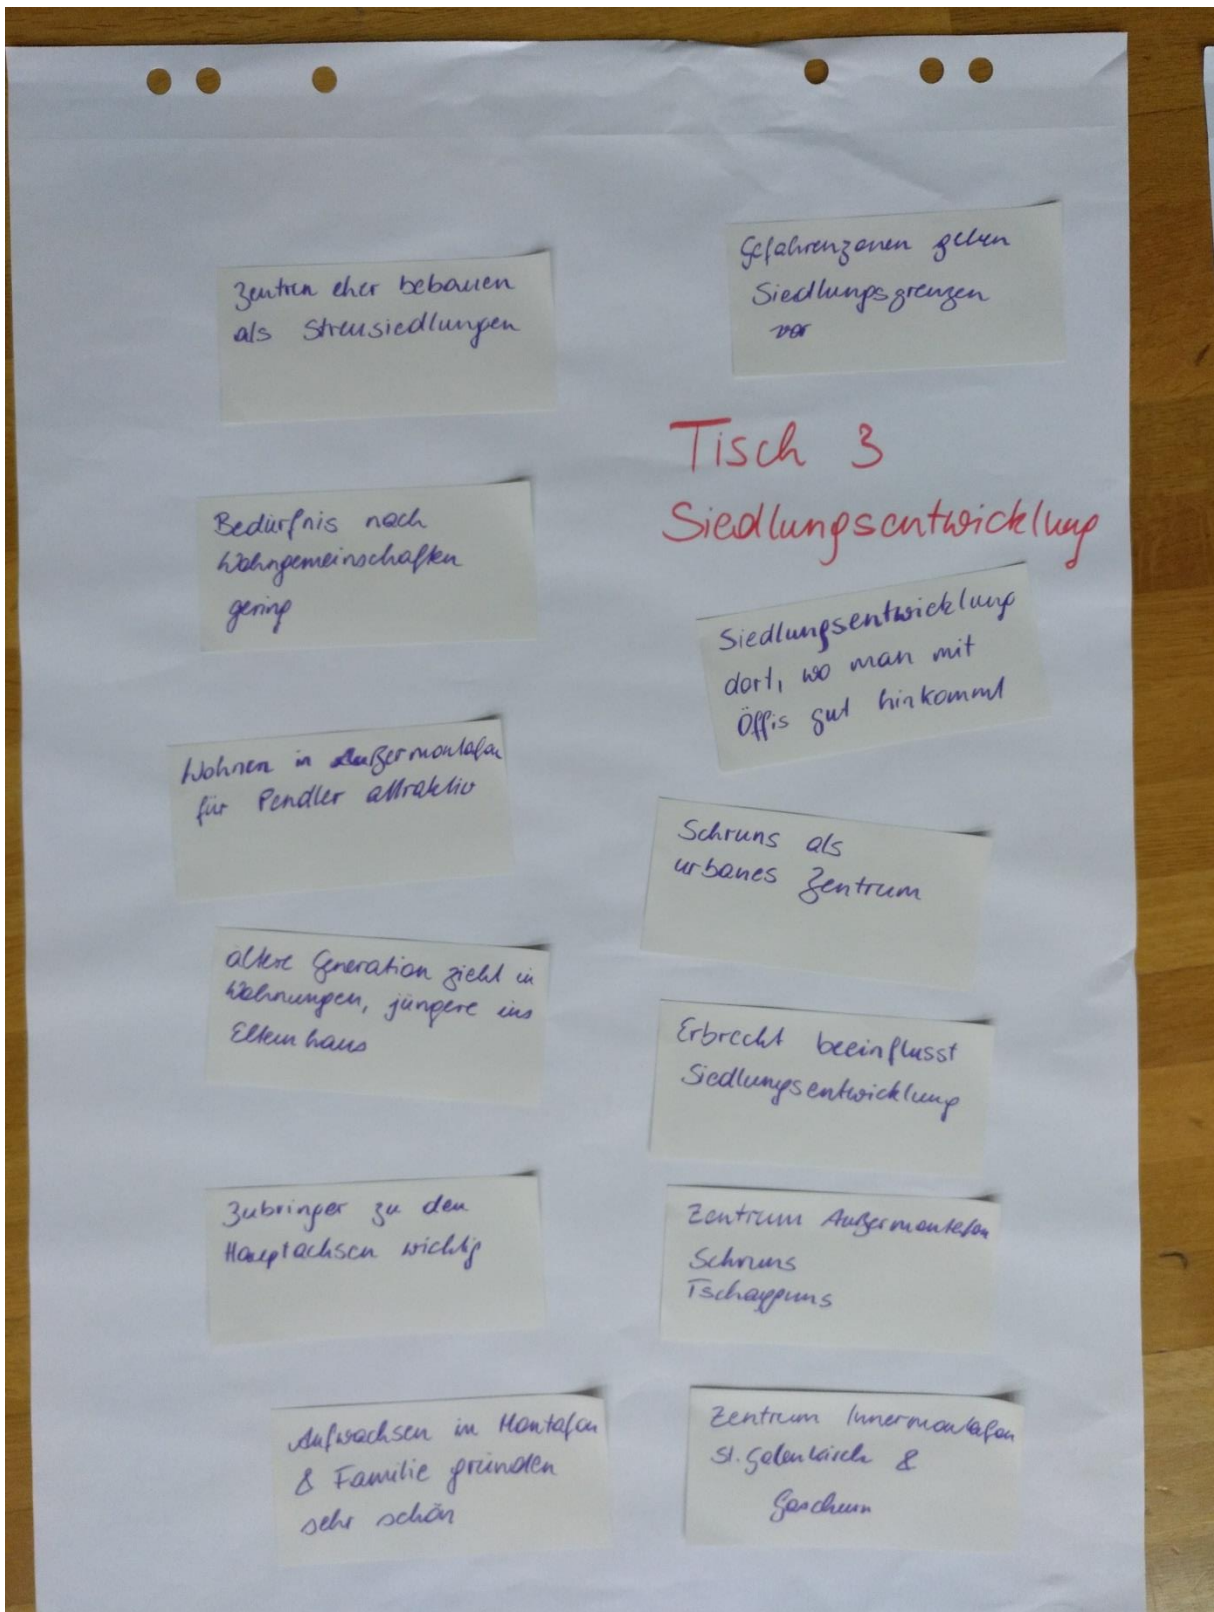 Zentren eher bebauen
als Streusiedlungen
Bedürfnis nach
Wohngemeinschaften
gering
Wohnen in Außermontafon
für Pendler attraktiv
ältere Generation zieht in
Wohnungen, jüngere ins
Elternhaus
Zubringer zu den
Hauptachsen wichtig
Aufwachsen im Montafon
& Familie gründen
sehr schön
Gefahrenzonen geben
Siedlungsgrenzen
vor
Tisch 3
Siedlungsentwicklung
Siedlungsentwicklung
dort, wo man mit
Öffis gut hinkommt
Schruns als
urbanes Zentrum
Erbrecht beeinflusst
Siedlungsentwicklung
Zentrum Außermontafon
Schruns
Tschagguns
Zentrum Innermontafon
St. Galenkirch &
Gaschurn